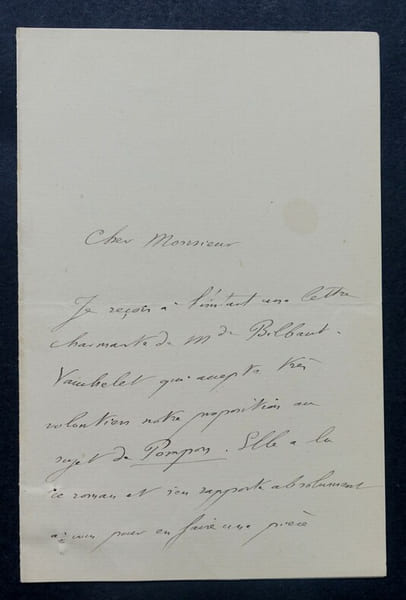 Cher Monsieur
Je reçois à l'instant une lettre
charmante de Mde Bilbaut-
Vauchelet qui accepte très
volontiers notre proposition au
sujet de Pompon. Elle a lu
ce roman et s'en rapporte absolument
à vous pour en faire une pièce